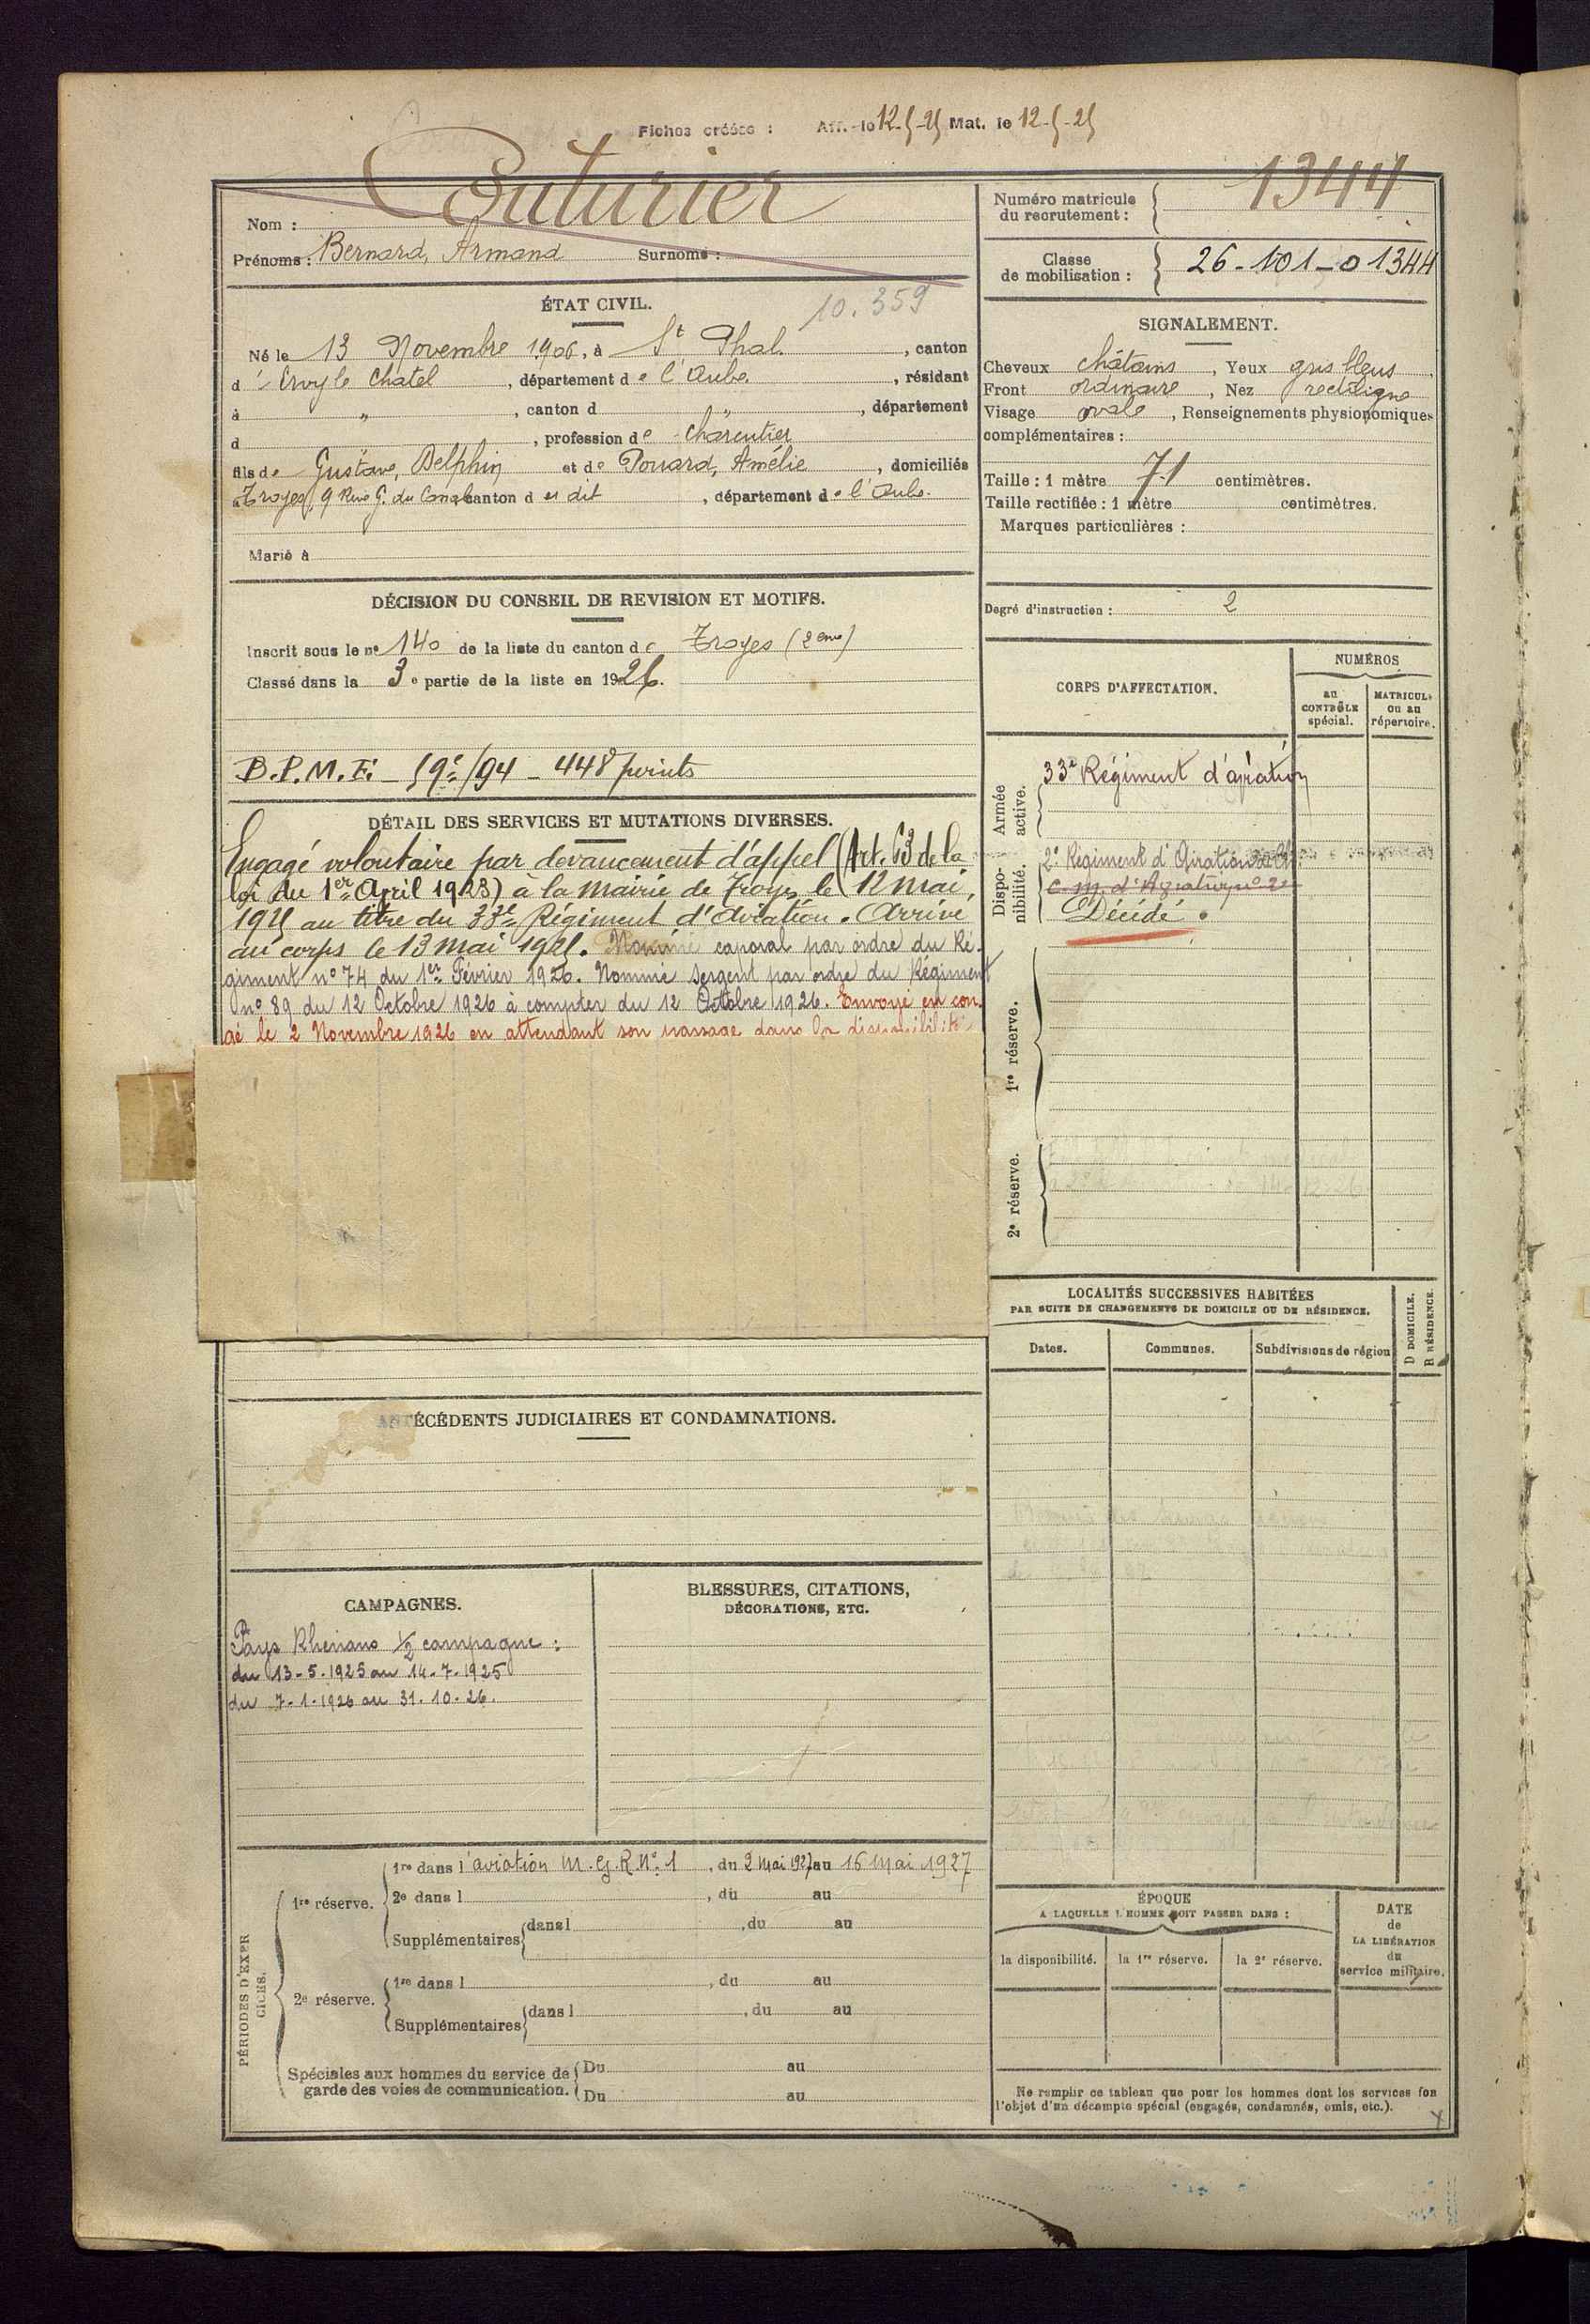 Fiches créées : Aff. le 12-5-25 Mat. le 12-5-25
Nom : Couturier
Prénoms : Bernard, Armand Surnoms :
Numéro matricule du recrutement : 1344
Classe de mobilisation : 26-101-01344
ÉTAT CIVIL.
10.359
Né le 13 Novembre 1906, à St Phal, canton
d'Ervy le Chatel, département de l'Aube, résidant
à ", canton d ", département
d , profession de charcutier
fils de Gustave, Delphin et de Ponard, Amélie, domiciliés
à Troyes, 9 Rue G. du Canal canton d es dit, département de l'Aube.
Marié à
SIGNALEMENT.
Cheveux châtains, Yeux gris bleus
Front ordinaire, Nez rectiligne
Visage ovale, Renseignements physionomiques
complémentaires :
Taille : 1 mètre 71 centimètres.
Taille rectifiée : 1 mètre centimètres.
Marques particulières :
Degré d'instruction : 2
DÉCISION DU CONSEIL DE REVISION ET MOTIFS.
Inscrit sous le no 140 de la liste du canton de Troyes (2eme)
Classé dans la 3e partie de la liste en 1926.
B.P.M.E. - 59e/94 - 448 points
DÉTAIL DES SERVICES ET MUTATIONS DIVERSES.
Engagé volontaire par devancement d'appel (Art. 63 de la
loi du 1er Avril 1923) à la mairie de Troyes le 12 mai
1925 au titre du 33e Régiment d'Aviation. Arrivé
au corps le 13 mai 1925. Nommé caporal par ordre du Ré-
giment no 74 du 1er Février 1926. Nommé sergent par ordre du Régiment
no 89 du 12 Octobre 1926 à compter du 12 Octobre 1926. Envoyé en con-
gé le 2 Novembre 1926 en attendant son passage dans la disponibilité
CORPS D'AFFECTATION.
NUMÉROS
au CONTRÔLE spécial.
MATRICULE ou au répertoire.
Armée active.
33e Régiment d'aviation
Disponibilité.
2e Régiment d'Aviation
C.M. d'Aviation no 2
Décédé.
1re réserve.
2e réserve.
LOCALITÉS SUCCESSIVES HABITÉES
PAR SUITE DE CHANGEMENTS DE DOMICILE OU DE RÉSIDENCE.
Dates.
Communes.
Subdivisions de région
D DOMICILE.
R RÉSIDENCE.
ANTÉCÉDENTS JUDICIAIRES ET CONDAMNATIONS.
CAMPAGNES.
Pays Rhénans 1/2 campagne :
du 13-5-1925 au 14-7-1925
du 7-1-1926 au 31-10-26.
BLESSURES, CITATIONS,
DÉCORATIONS, ETC.
PÉRIODES D'EXERCICES.
1re réserve.
1re dans l'aviation M.G.R. No 1, du 2 Mai 1927 au 16 Mai 1927
2e dans l , du au
Supplémentaires dans l , du au
2e réserve.
1re dans l , du au
Supplémentaires dans l , du au
Spéciales aux hommes du service de
garde des voies de communication.
Du au
Du au
ÉPOQUE
A LAQUELLE L'HOMME DOIT PASSER DANS :
la disponibilité.
la 1re réserve.
la 2e réserve.
DATE
de
LA LIBÉRATION
du
service militaire.
Ne remplir ce tableau que pour les hommes dont les services fon
l'objet d'un décompte spécial (engagés, condamnés, omis, etc.).